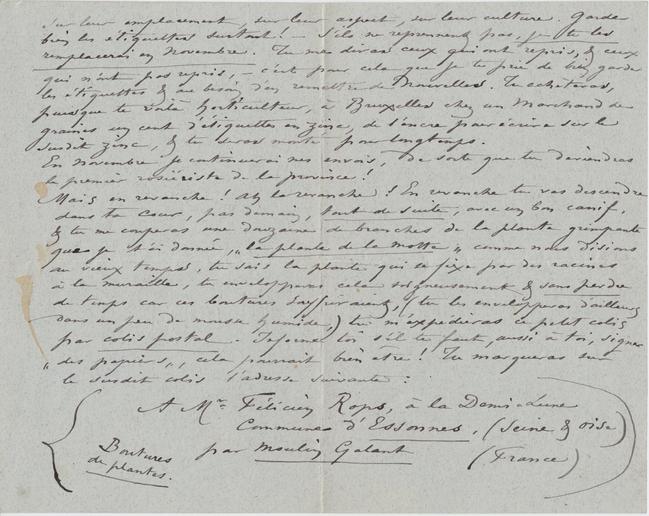 sur leur emplacement, sur leur aspect, sur leur culture. Garde
bien les étiquettes surtout ! – S'ils ne reprennent pas, je te les
remplacerai en Novembre. Tu me diras ceux qui ont repris, & ceux
qui n'ont pas repris, – c'est pour cela que je te prie de bien garder
les étiquettes & au besoin d'en remettre de Nouvelles. Tu acheteras,
puisque te voilà horticulteur, à Bruxelles chez un Marchand de
graines un cent d'étiquettes en zinc, de l'encre pour écrire sur le
susdit zinc, & tu seras monté pour longtemps.
En Novembre je continuerai mes envois. De sorte que tu deviendras
le premier rosiériste de la province !
Mais en revanche ! Ah la revanche ! En revanche tu vas descendre
dans ta Cour, pas demain, tout de suite, avec un bon canif,
& tu me couperas une douzaine de branches de la plante grimpante
que je t'ai donnée, „la plante de la motte" comme nous disions
au vieux temps, tu sais la plante qui se fixe par des racines
à la muraille, tu envelopperas cela soigneusement & sans perdre
de temps car ces boutures souffriraient, (tu les envelopperas d'ailleurs
dans un peu de mousse humide,) tu m'expédieras ce petit colis
par colis postal. Informe toi, s'il te faut, aussi à toi, signer
„des papiers", cela pourrait bien être ! Tu marqueras sur
le susdit colis l'adresse suivante :
A Mr. Félicien Rops, à la Demi-Lune
Commune d'Essonnes, (Seine & Oise)
par Moulin Galant (France)
Boutures
de plantes.